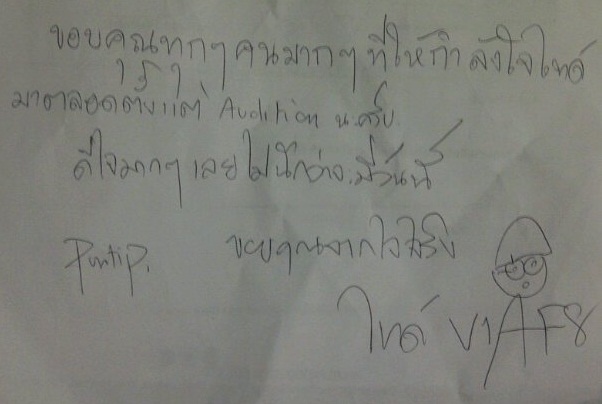 ขอบคุณทุกๆคนมากๆ ที่ให้กำลังใจไทด์
มาตลอดตั้งแต่ Audition นะครับ
ดีใจมากๆ เลย ไม่นึกว่าจะมีวันนี้
ขอบคุณจากใจจริง
Puntip.
ไทด์ V1 AF8